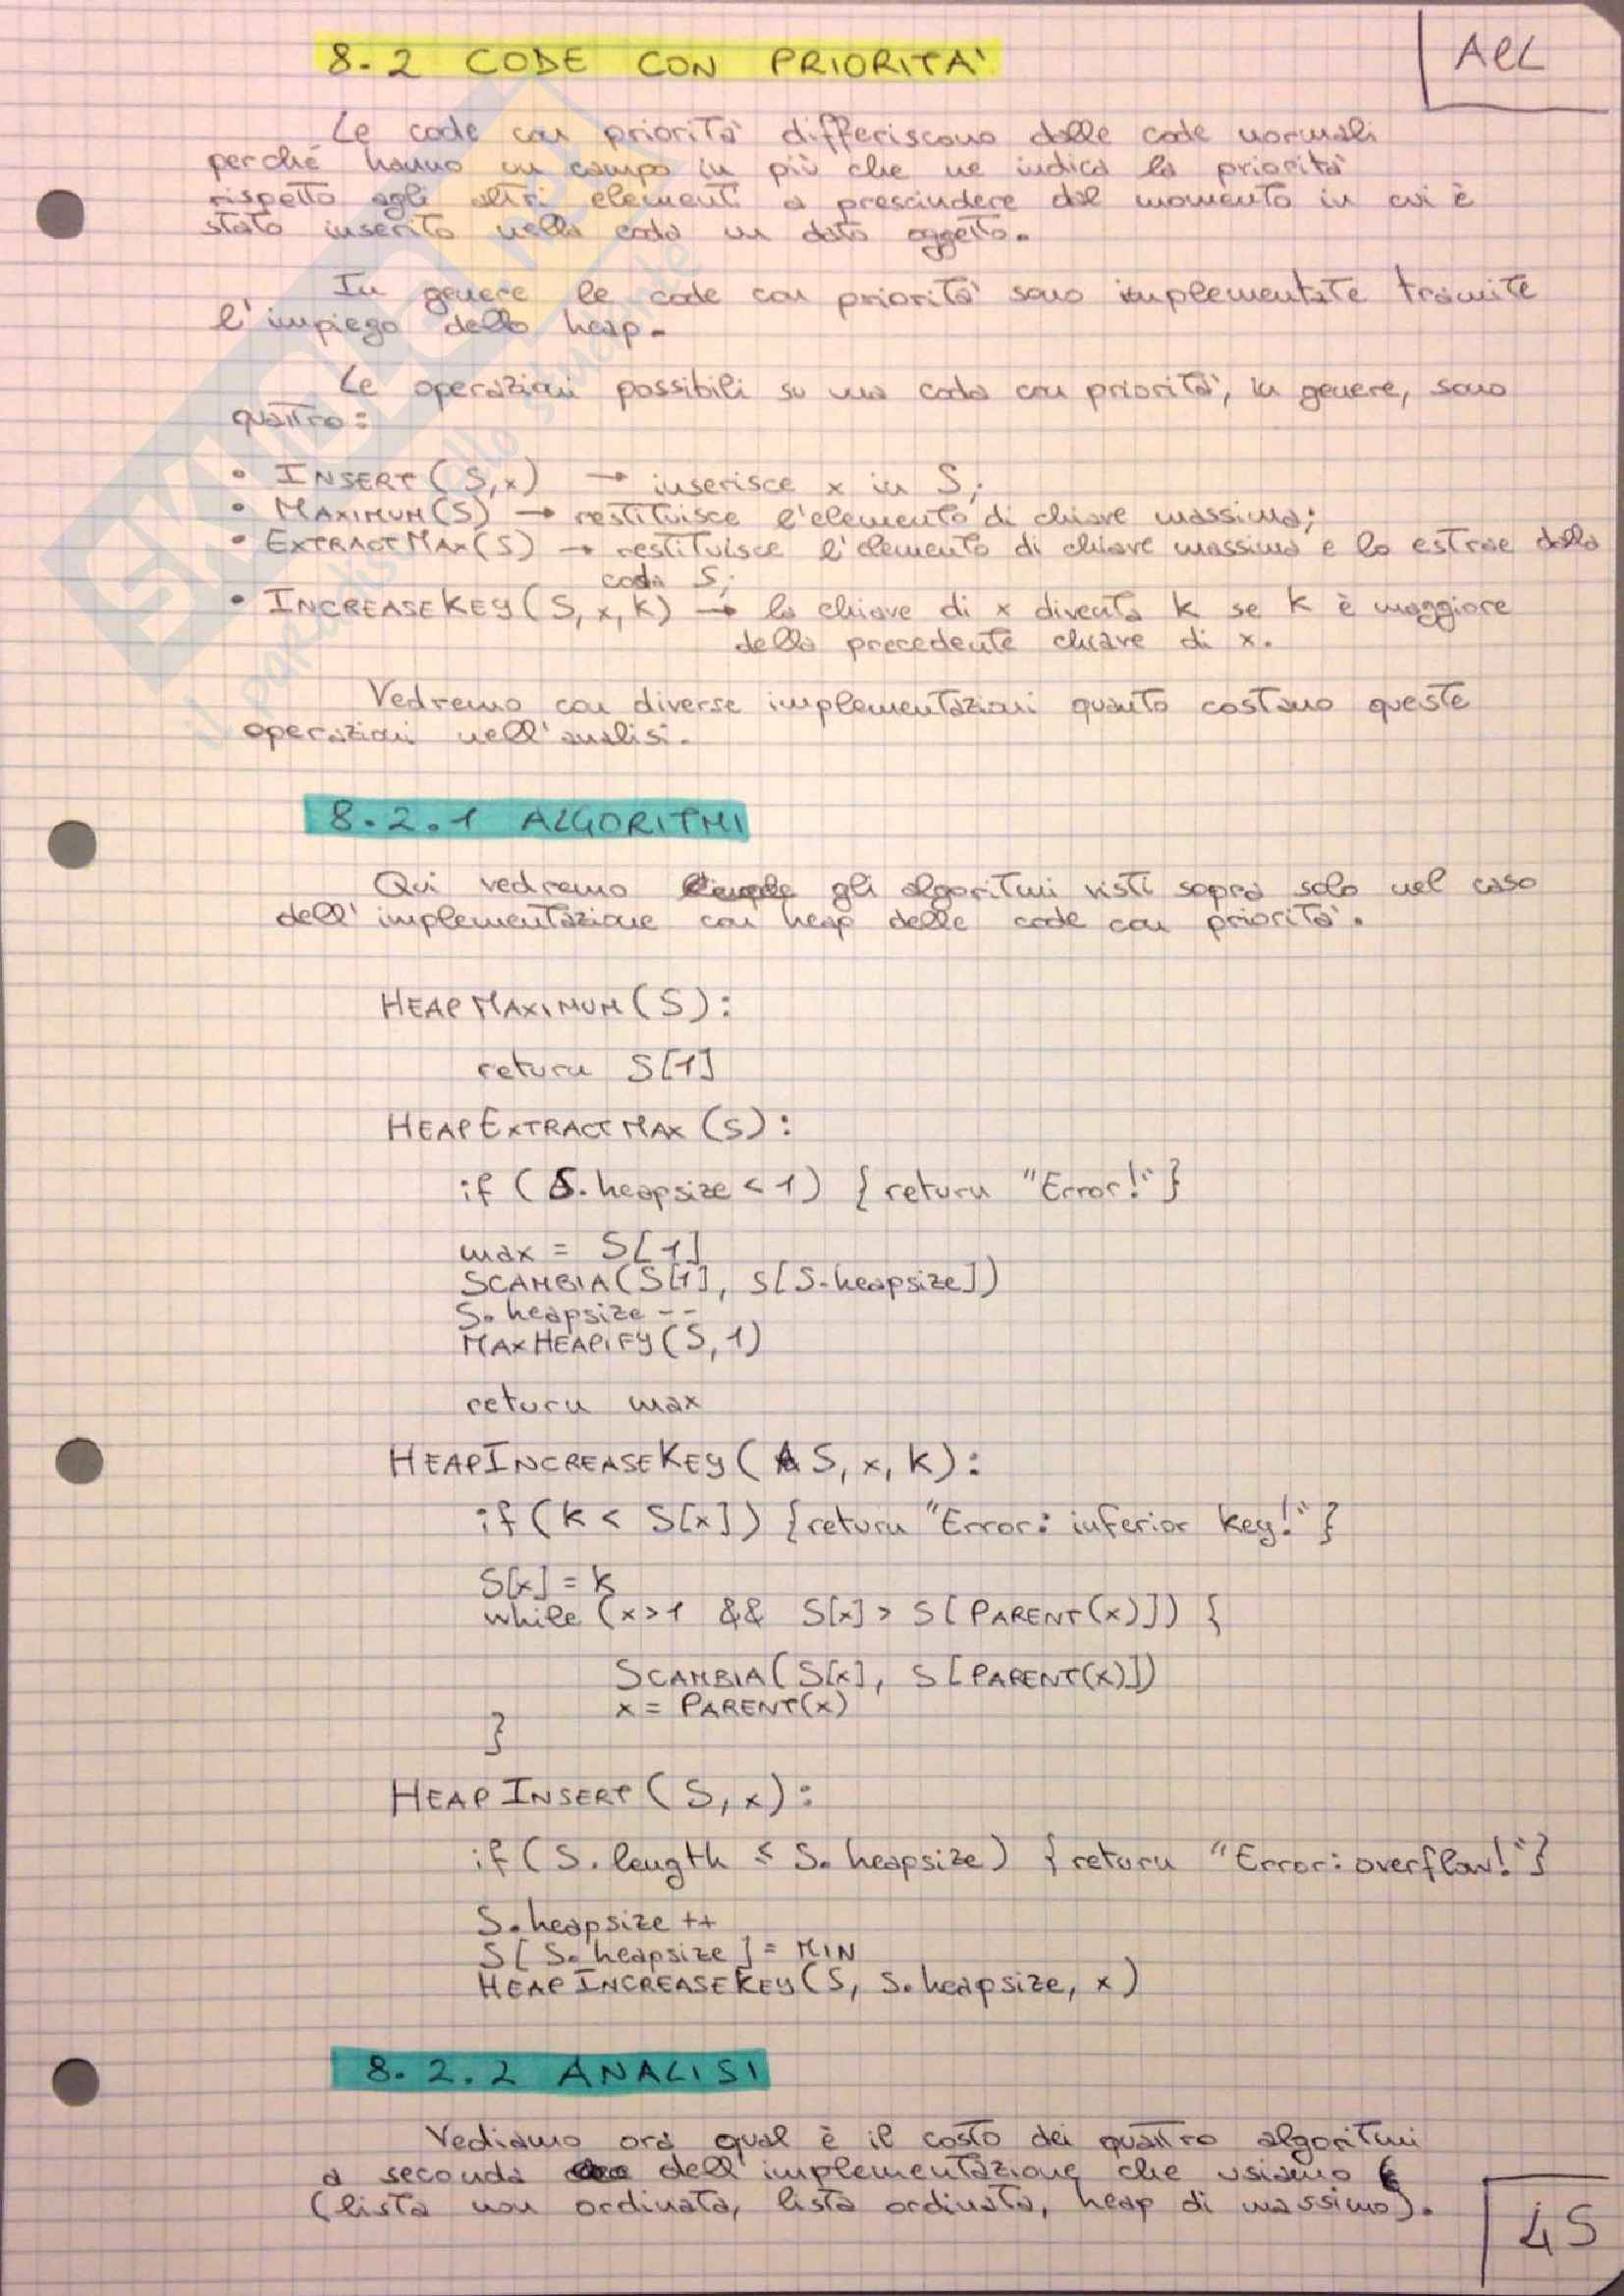 8.2 CODE CON PRIORITA'
AeL
Le code con priorità differiscono dalle code normali
perché hanno un campo in più che ne indica la priorità
rispetto agli altri elementi a prescindere dal momento in cui è
stato inserito nella coda un dato oggetto.
In genere le code con priorità sono implementate tramite
l'impiego dello heap.
Le operazioni possibili su una coda con priorità, in genere, sono
quattro:
• INSERT(S,x) → inserisce x in S;
• MAXIMUM(S) → restituisce l'elemento di chiave massima;
• EXTRACTMAX(S) → restituisce l'elemento di chiave massima e lo estrae dalla
coda S;
• INCREASEKEY(S,x,K) → la chiave di x diventa K se K è maggiore
della precedente chiave di x.
Vedremo con diverse implementazioni quanto costano queste
operazioni nell'analisi.
8.2.1 ALGORITMI
Qui vedremo gli algoritmi visti sopra solo nel caso
dell'implementazione con heap delle code con priorità.
HEAPMAXIMUM(S):
return S[1]
HEAPEXTRACTMAX(S):
if (S.heapsize < 1) {return "Error!"}
max = S[1]
SCAMBIA(S[1], S[S.heapsize])
S.heapsize --
MAXHEAPIFY(S,1)
return max
HEAPINCREASEKEY(S,x,K):
if(K < S[x]) {return "Error: inferior key!"}
S[x] = K
while (x>1 && S[x] > S[PARENT(x)]) {
SCAMBIA(S[x], S[PARENT(x)])
x = PARENT(x)
}
HEAPINSERT(S,x):
if(S.length ≤ S.heapsize) {return "Error: overflow!"}
S.heapsize ++
S[S.heapsize] = MIN
HEAPINCREASEKEY(S, S.heapsize, x)
8.2.2 ANALISI
Vediamo ora qual è il costo dei quattro algoritmi
a seconda dell'implementazione che usiamo
(lista non ordinata, lista ordinata, heap di massimo).
45
SKUOLA.net
il paradiso dello studente